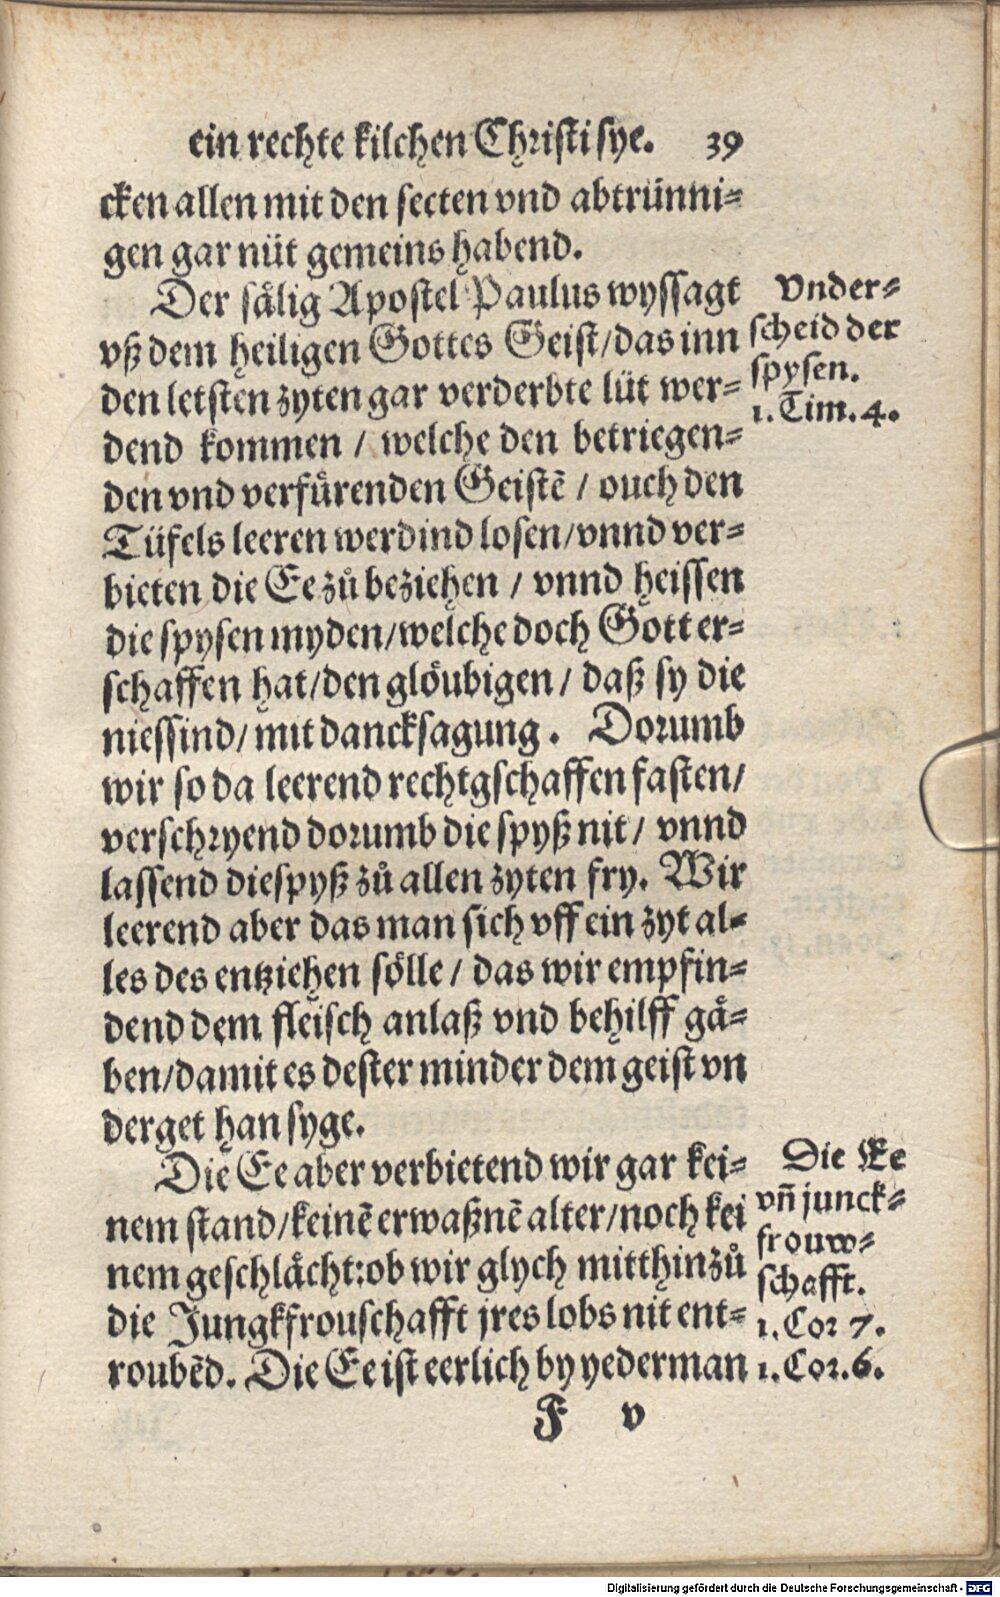 ein rechte kilchen Christi sye. 39
cken allen mit den secten vnd abtrünni⸗
gen gar nüt gemeins habend.
Der sålig Apostel Paulus wyssagt
vß dem heiligen Gottes Geist/das inn
den letsten zyten gar verderbte lüt wer⸗
dend kommen / welche den betriegen⸗
den vnd verfůrenden Geistē / ouch den
Tüfels leeren werdind losen/vnnd ver⸗
bieten die Ee zů beziehen / vnnd heissen
die spysen myden/welche doch Gott er⸗
schaffen hat/den glöubigen / daß sy die
niessind/ mit dancksagung. Dorumb
wir so da leerend rechtgschaffen fasten/
verschryend dorumb die spyß nit / vnnd
lassend die spyß zů allen zyten fry. Wir
leerend aber das man sich vff ein zyt al⸗
les des entziehen sölle / das wir empfin⸗
dend dem fleisch anlaß vnd behilff gå⸗
ben/damit es dester minder dem geist vn
derget han syge.
Die Ee aber verbietend wir gar kei⸗
nem stand/keinē erwaßnē alter/noch kei
nem geschlächt:ob wir glych mitthinzů
die Jungkfrouschafft jres lobs nit ent⸗
roubēd. Die Ee ist eerlich by yederman
F v
Vnder⸗
scheid der
spysen.
1. Tim. 4.
Die Ee
vñ junck⸗
frouw⸗
schafft.
1. Cor 7.
1. Cor. 6.
Digitalisierung gefördert durch die Deutsche Forschungsgemeinschaft - DFG